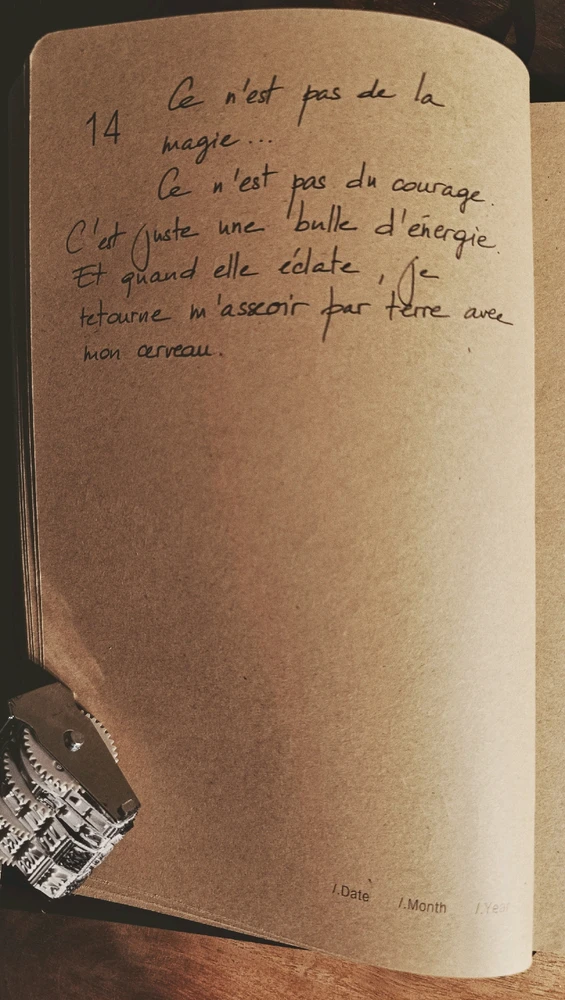 14
Ce n'est pas de la
magie...
Ce n'est pas du courage.
C'est juste une bulle d'énergie.
Et quand elle éclate, je
retourne m'asseoir par terre avec
mon cerveau.
/.Date /.Month /.Year